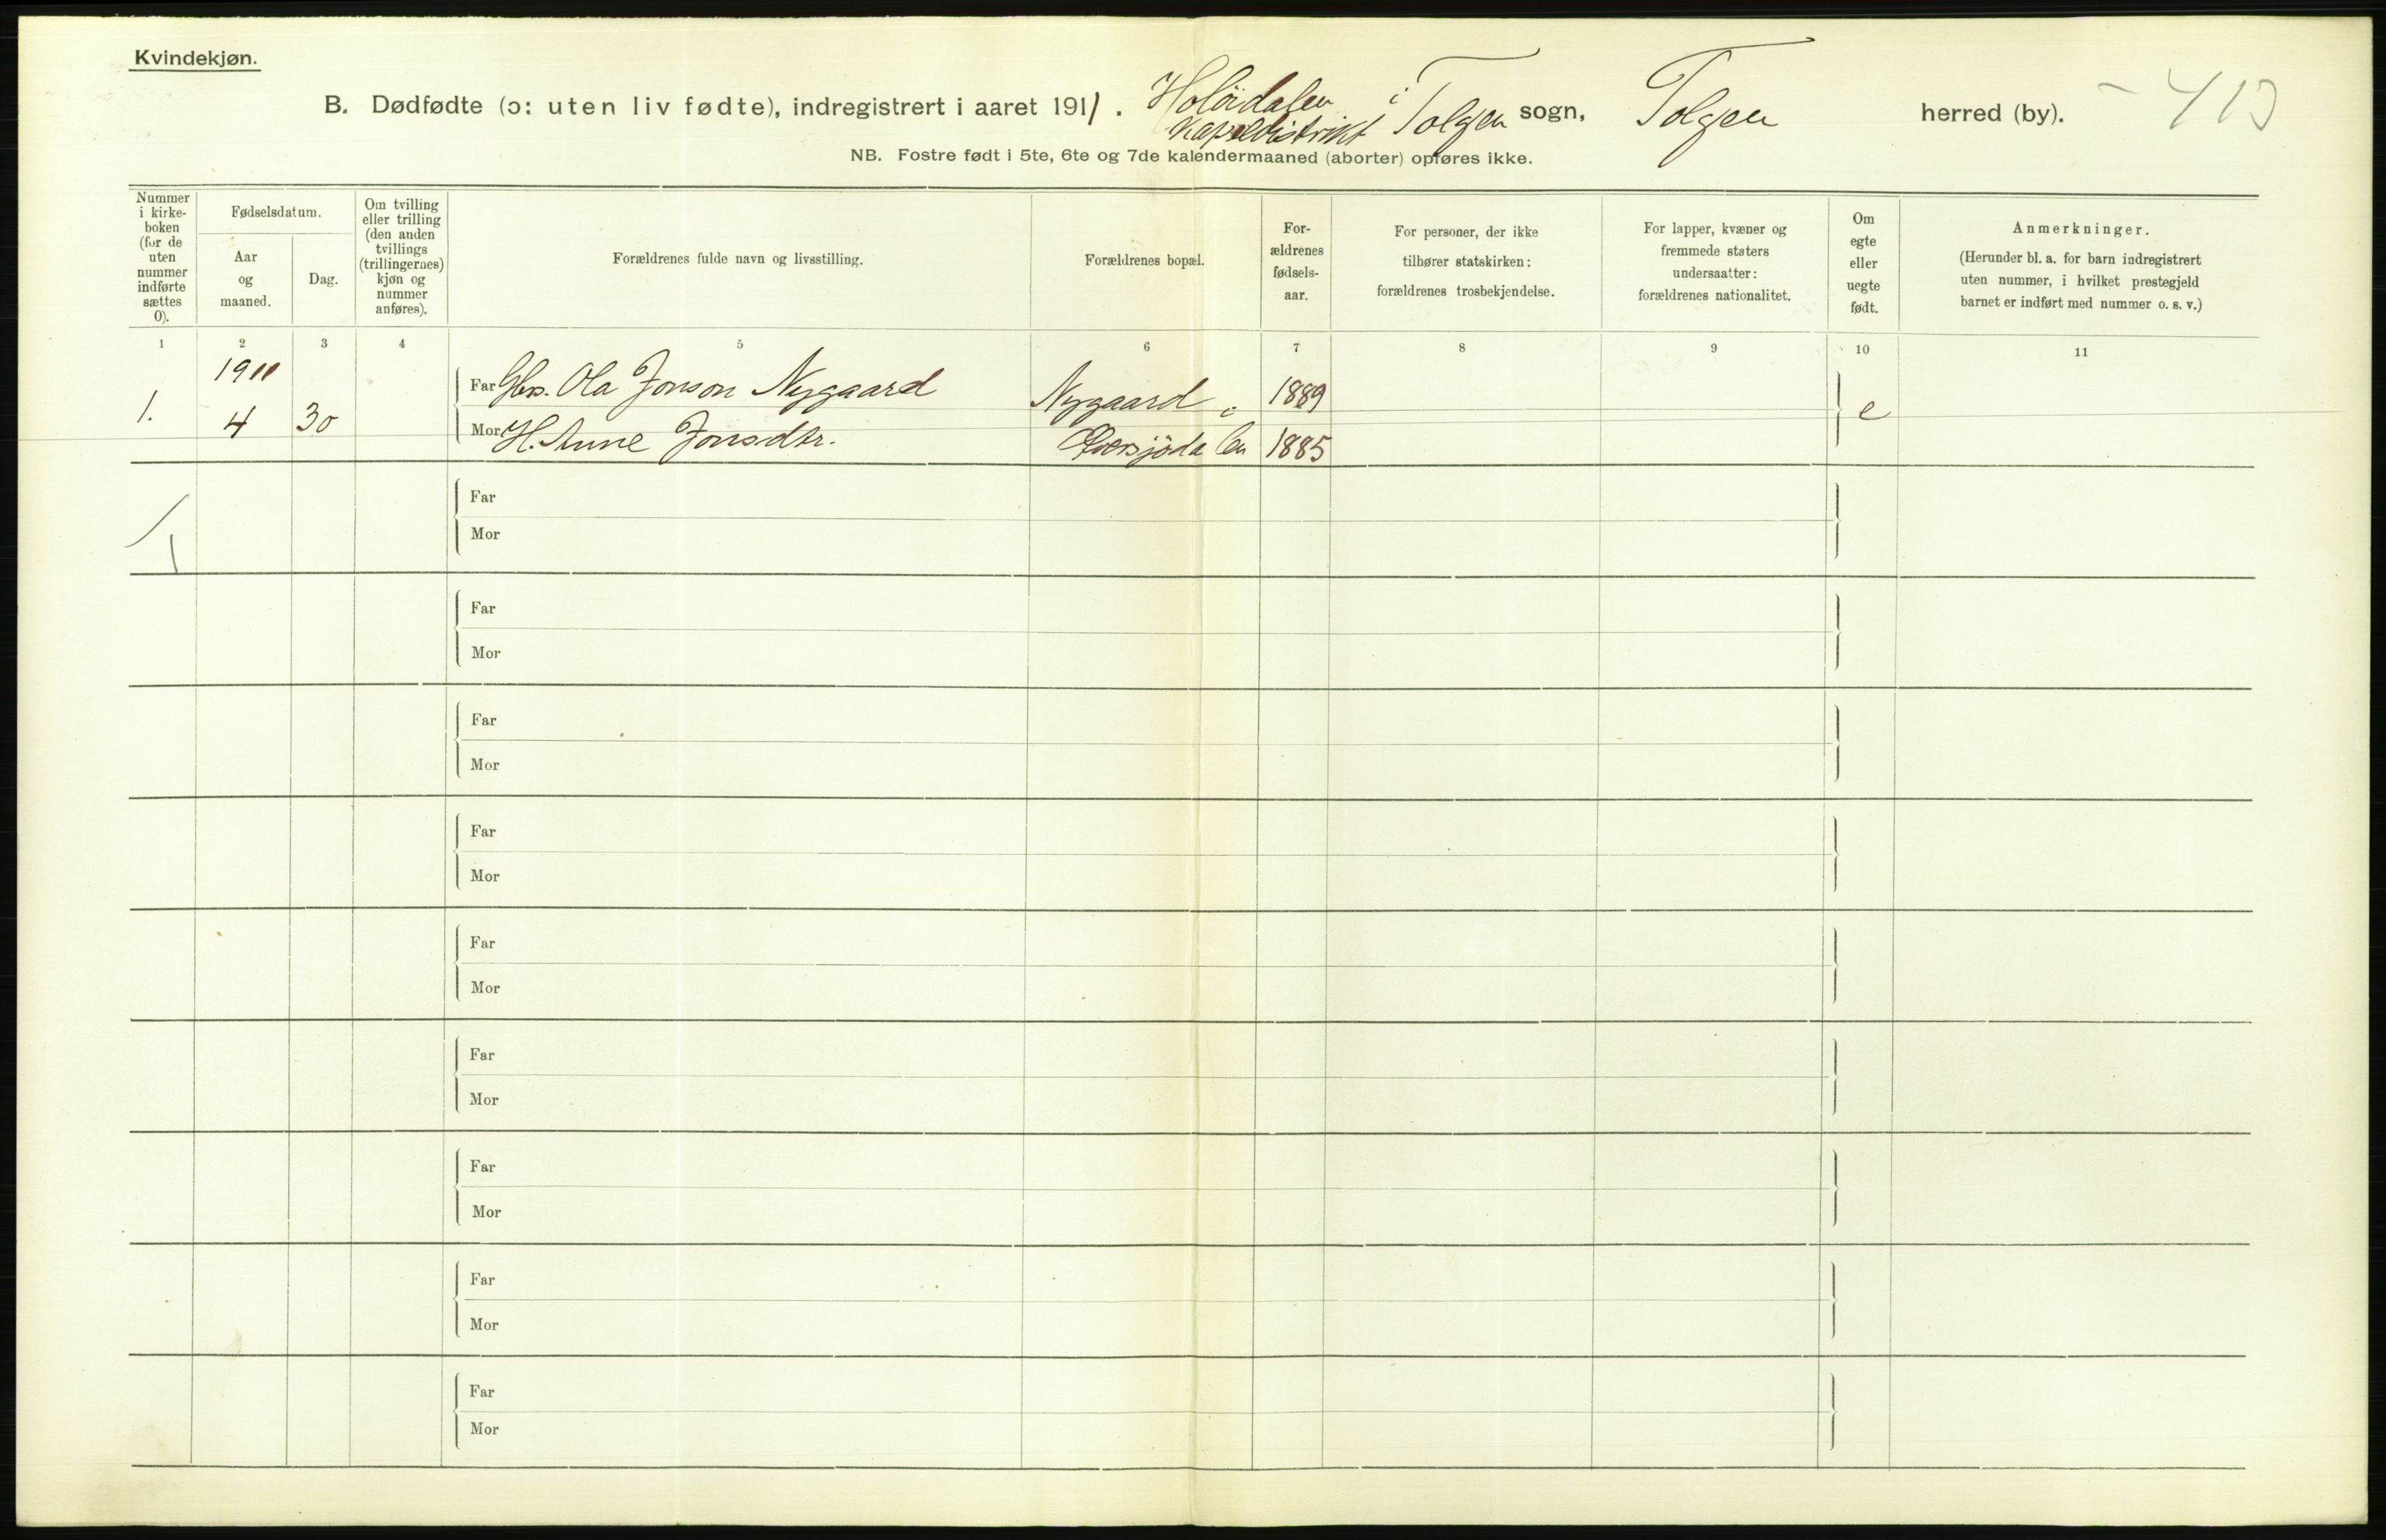 Kvindekjøn.
B. Dødfødte (ɔ: uten liv fødte), indregistrert i aaret 1911. Holöidalen kapeldistrikt i Tolgen sogn, Tolgen herred (by). - 413
NB. Fostre født i 5te, 6te og 7de kalendermaaned (aborter) opføres ikke.
Nummer
i kirke-
boken
(for de
uten
nummer
indførte
sættes
0).
Fødselsdatum.
Aar
og
maaned.
Dag.
Om tvilling
eller trilling
(den anden
tvillings
(trillingernes)
kjøn og
nummer
anføres).
Forældrenes fulde navn og livsstilling.
Forældrenes bopæl.
For-
ældrenes
fødsels-
aar.
For personer, der ikke
tilhører statskirken:
forældrenes trosbekjendelse.
For lapper, kvæner og
fremmede staters
undersaatter:
forældrenes nationalitet.
Om
egte
eller
uegte
født.
Anmerkninger.
(Herunder bl. a. for barn indregistrert
uten nummer, i hvilket prestegjeld
barnet er indført med nummer o. s. v.)
1 2 3 4 5 6 7 8 9 10 11
1911
Far Gbr. Ola Jonson Nygaard Nygaard i 1889
1. 4 30 e
Mor H. Anne Jonsdtr. 1885
Far
1
Mor
Far
Mor
Far
Mor
Far
Mor
Far
Mor
Far
Mor
Far
Mor
Far
Mor
Far
Mor